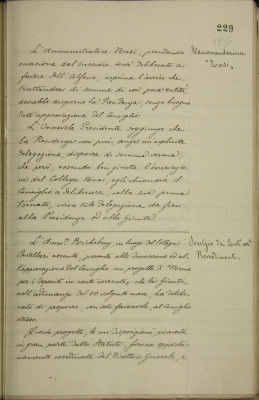 229
L'Amministratore Nasi, prendendo
occasione dal sussidio testè deliberato a
favore dell'
esprime l'avviso che
trattandosi di somme di così poca entità
dovrebbe disporne la Presidenza, senza bisogno
dell'approvazione del Consiglio.
L'Onorevole Presidente soggiunge che
la Presidenza non può, senza un'esplicita
delegazione, disporre di somme
che però, essendo ben giusta l'osservazio-
ne del Collega Nasi egli chiamerà il
Consiglio a deliberare, nella sua prima
tornata, circa tale delegazione, da farsi
alla Presidenza od alla Giunta.
Raccomandazione
Nasi.
L'Amm.e
in luogo del Collega
Castellari assente, presenta alla discussione ed al-
l'approvazione del Consiglio un progetto di Norme
per i depositi in conto corrente, che la Giunta,
nell'adunanza del 10 volgente mese, ha delibe-
rato di proporre, con voto favorevole, al Consiglio
stesso.
Servizio dei Conti corr.
Provvedimenti.
Questo progetto, le cui disposizioni
in gran parte dallo Statuto, furono opportu-
namente coordinate dal Direttore Generale, e